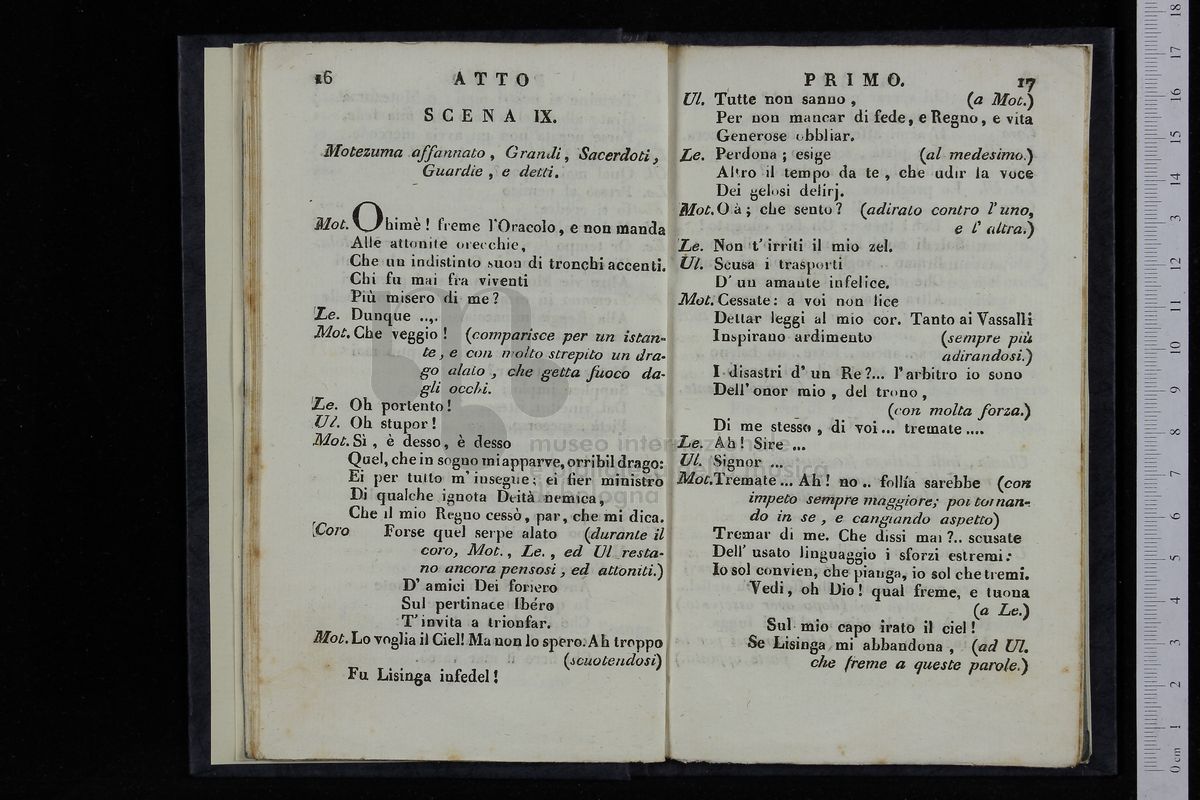 16 ATTO
SCENA IX.
Motezuma affannato, Grandi, Sacerdoti,
Guardie, e detti.
Mot. Ohimè! freme l'Oracolo, e non manda
Alle attonite orecchie,
Che un indistinto suon di tronchi accenti.
Chi fu mai fra viventi
Più misero di me?
Le. Dunque ....
Mot. Che veggio! (comparisce per un istan-
te, e con molto strepito un dra-
go alato, che getta fuoco da-
gli occhi.
Le. Oh portento!
Ul. Oh stupor!
Mot. Sì, è desso, è desso
Quel, che in sogno mi apparve, orribil drago:
Ei per tutto m'insegue: ei fier ministro
Di qualche ignota Deità nemica,
Che il mio Regno cessò, par, che mi dica.
Coro Forse quel serpe alato (durante il
coro, Mot., Le., ed Ul resta-
no ancora pensosi, ed attoniti.)
D' amici Dei foriero
Sul pertinace Ibéro
T'invita a trionfar.
Mot. Lo voglia il Ciel! Ma non lo spero. Ah troppo
(scuotendosi)
Fu Lisinga infedel!
PRIMO. 17
Ul. Tutte non sanno, (a Mot.)
Per non mancar di fede, e Regno, e vita
Generose obbliar.
Le. Perdona; esige (al medesimo.)
Altro il tempo da te, che udir la voce
Dei gelosi delirj.
Mot. Oà; che sento? (adirato contro l'uno,
e l'altra.)
Le. Non t'irriti il mio zel.
Ul. Scusa i trasporti
D' un amante infelice.
Mot. Cessate: a voi non lice
Dettar leggi al mio cor. Tanto ai Vassalli
Inspirano ardimento (sempre più
adirandosi.)
I disastri d' un Re?... l'arbitro io sono
Dell' onor mio, del trono,
(con molta forza.)
Di me stesso, di voi... tremate....
Le. Ah! Sire ...
Ul. Signor ...
Mot. Tremate... Ah! no.. follía sarebbe (con
impeto sempre maggiore; poi tornan-
do in se, e cangiando aspetto)
Tremar di me. Che dissi mai?.. scusate
Dell' usato linguaggio i sforzi estremi:
Io sol convien, che pianga, io sol che tremi.
Vedi, oh Dio! qual freme, e tuona
(a Le.)
Sul mio capo irato il ciel!
Se Lisinga mi abbandona, (ad Ul.
che freme a queste parole.)
museo internazionale
e biblioteca della musica
di bologna
0 cm 1 2 3 4 5 6 7 8 9 10 11 12 13 14 15 16 17 18